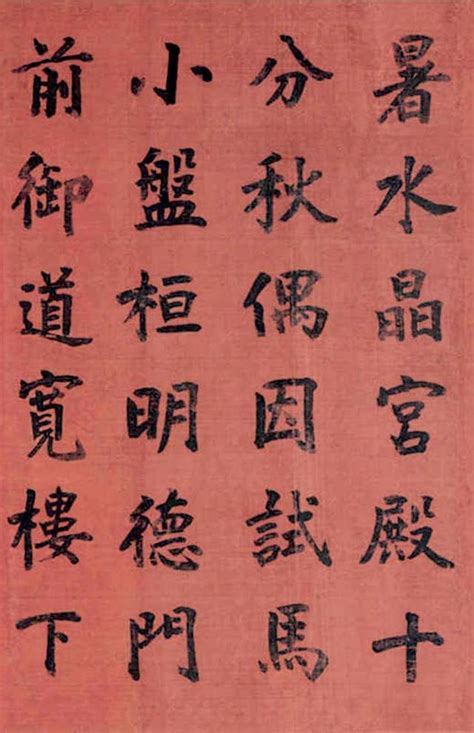 暑水晶宮殿十
分秋偶因試馬
小盤桓明德門
前御道寬樓下